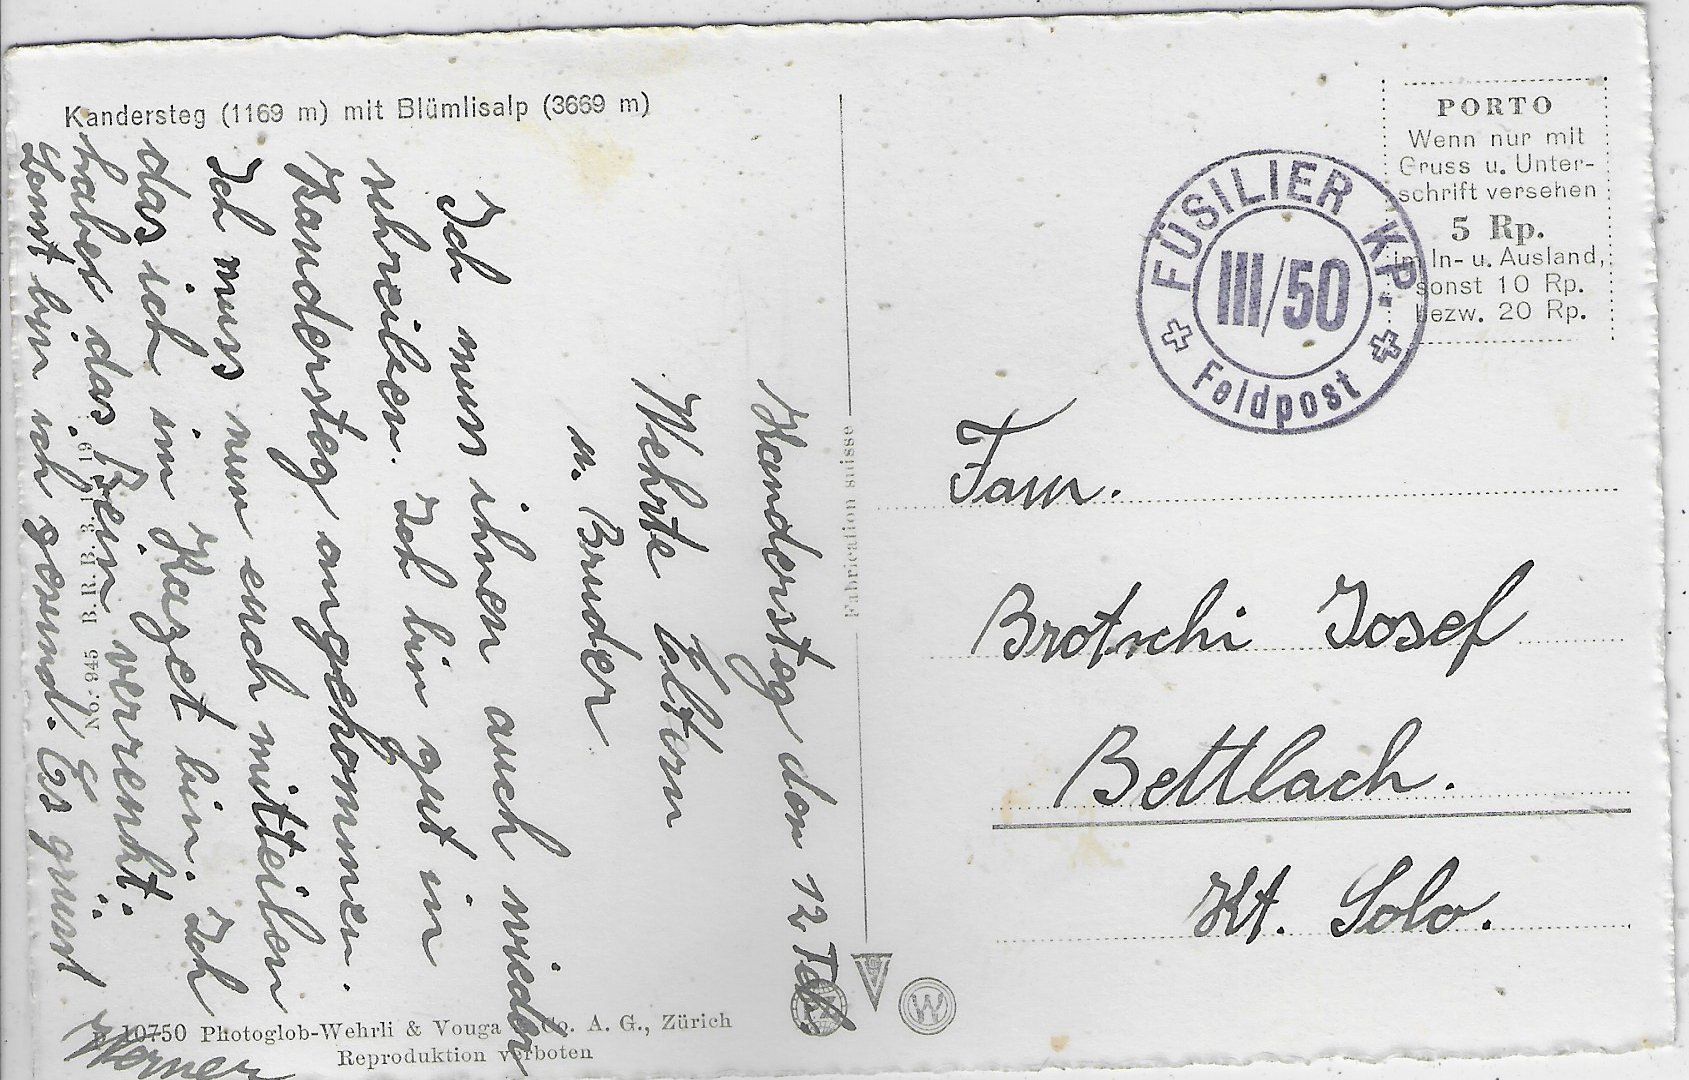 Kandersteg (1169 m) mit Blümlisalp (3669 m)
Kandersteg den 12. Feb.
Wehrte Eltern
u. Bruder
Ich muss ihnen auch wieder
schreiben. Ich bin gut in
Kandersteg angekommen.
Ich muss nun euch mitteilen
das ich im Kazet bin. Ich
habe das Bein verrenkt.
Sonst bin ich gesund. Es grüsst
Werner
No. 945 B.R.B. 3.
10750 Photoglob-Wehrli & Vouga & Co. A. G., Zürich
Reproduktion verboten
Fabrication suisse
W
PORTO
Wenn nur mit
Gruss u. Unter-
schrift versehen
5 Rp.
im In- u. Ausland,
sonst 10 Rp.
bezw. 20 Rp.
FÜSILIER KP.
III/50
Feldpost
Fam.
Brotschi Josef
Bettlach.
Kt. Solo.